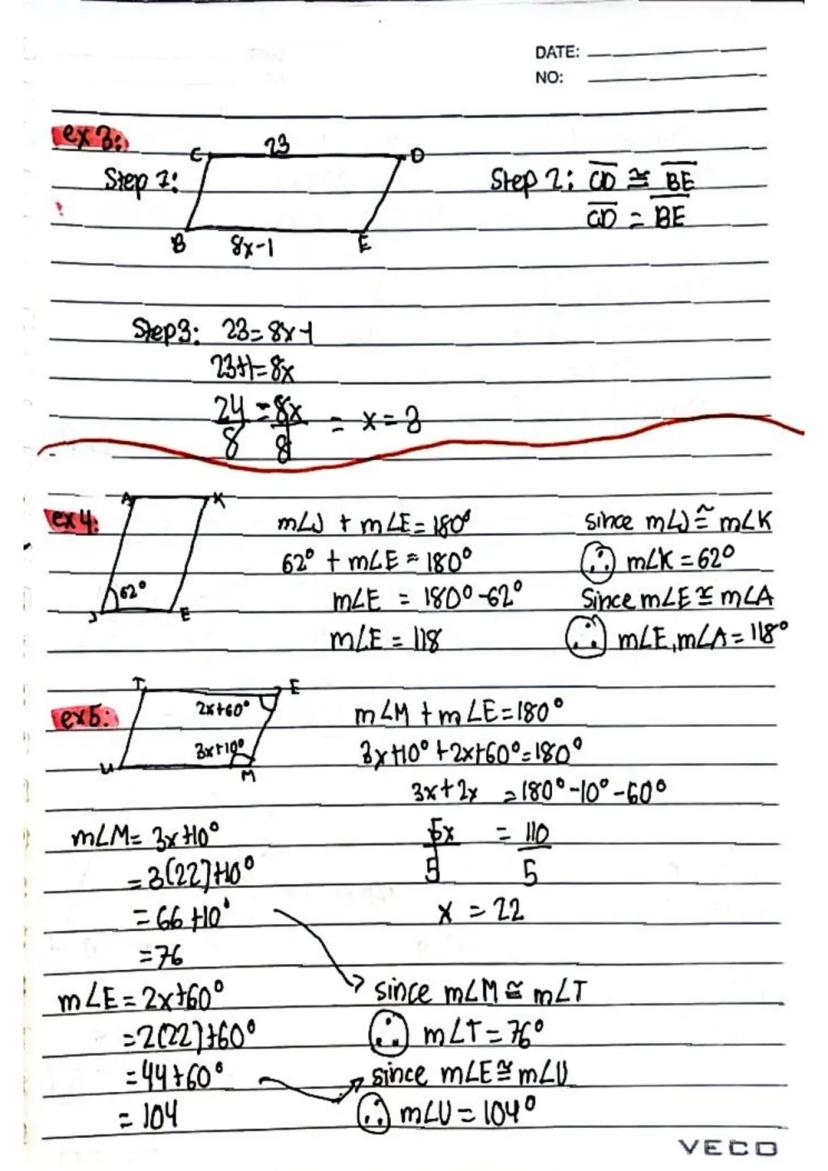 DATE:
NO:
ex 3:
C 23 D
Step 1:
B 8x-1 E
Step 2: CD ≅ BE
CD = BE
Step 3: 23 = 8x-1
23+1 = 8x
24/8 = 8x/8 = x = 3
ex 4:
A K
62°
J E
m∠J + m∠E = 180°
62° + m∠E = 180°
m∠E = 180° - 62°
m∠E = 118
since m∠J ≅ m∠K
∴ m∠K = 62°
Since m∠E ≅ m∠A
∴ m∠E, m∠A = 118°
ex 5:
T E
2x+60°
3x+10°
U M
m∠M + m∠E = 180°
3x+10° + 2x+60° = 180°
3x+2x = 180° - 10° - 60°
5x/5 = 110/5
x = 22
m∠M = 3x+10°
= 3(22)+10°
= 66+10°
= 76
m∠E = 2x+60°
= 2(22)+60°
= 44+60°
= 104
since m∠M ≅ m∠T
∴ m∠T = 76°
since m∠E ≅ m∠U
∴ m∠U = 104°
VECO